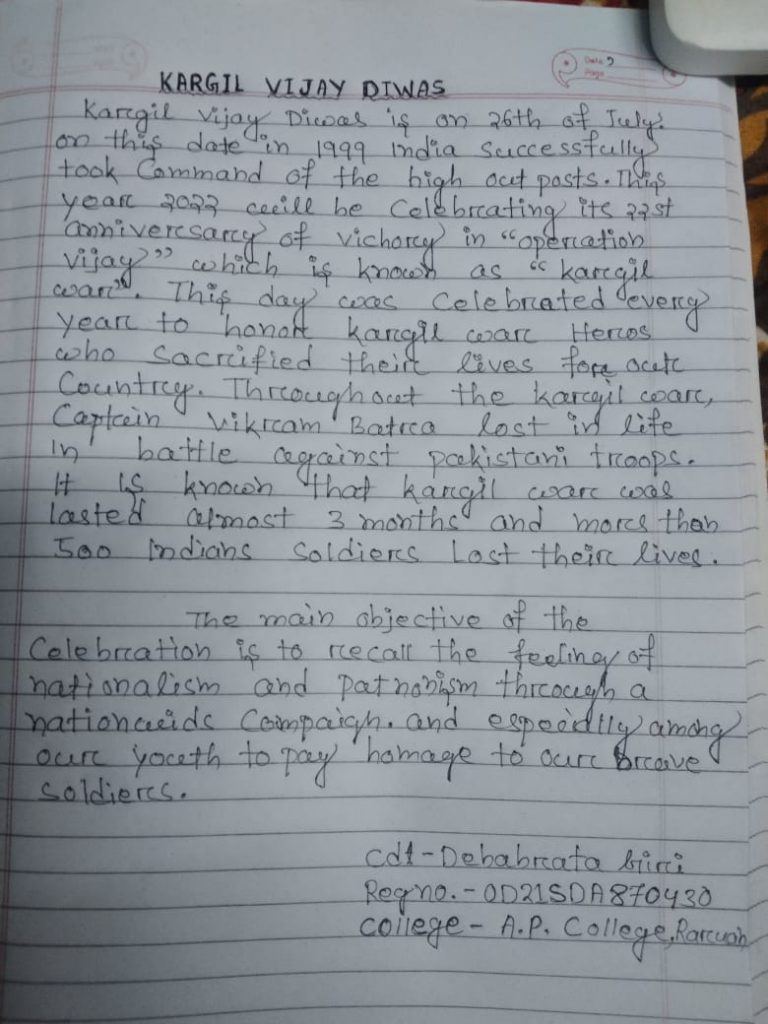 Date
Page
KARGIL VIJAY DIWAS
Kargil Vijay Diwas is on 26th of July.
on this date in 1999 India successfully
took Command of the high out posts. This
year 2022 will be Celebrating its 22st
anniversary of vichory in "operation
vijay" which is known as "kargil
war". This day was Celebrated every
year to honor kargil war Heros
who Sacrified their lives for our
Country. Throughout the kargil war,
Captain Vikram Batra lost in life
in battle against pakistani troops.
It is known that kargil war was
lasted almost 3 months and mores than
500 Indians Soldiers Lost their lives.
The main objective of the
Celebration is to recall the feeling of
nationalism and patriotism through a
nationwids Compaigh. and especially among
our youth to pay homage to our brave
soldiers.
Cdt-Debabrata Giri
Regno.- OD21SDA870430
College- A.P. College,